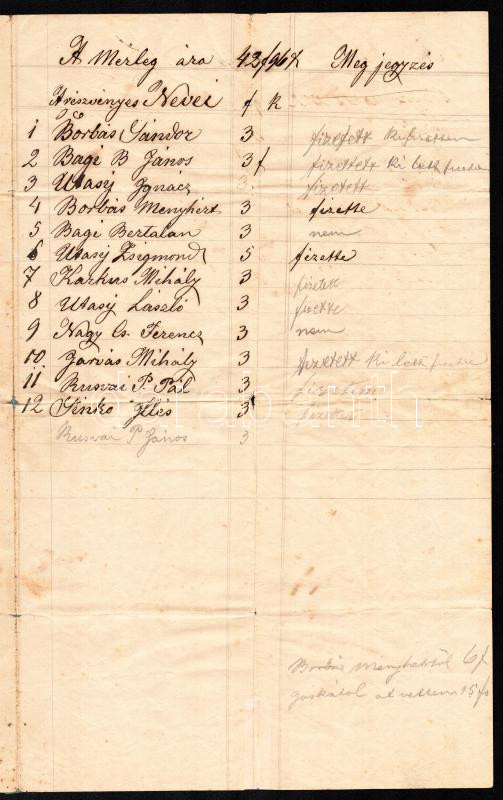 A Mérleg ára 42f96k Meg jegyzés
A részvényes Nevei f k
1 Borbás Sándor 3 fizetett
2 Bagi B János 3f fizettett ki lett
3 Utasij Ignácz 3. fizetett
4 Borbás Menyhért 3 fizette
5 Bagi Bertalan 3 nem
6 Utasij Zsigmond 5 fizette
7 Karkus Mihály 3 fizetek
8 Utasij László 3 fizette
9 Nagy Cs. Ferencz 3 nem
10 Járvás Mihály 3 fizetett ki lett
11 Rusvai P. Pál 3
12 Sinkó Illés 3
Rusvai P János 3
Borbás Menyhértől 6f
át vettem 15f
darabanth